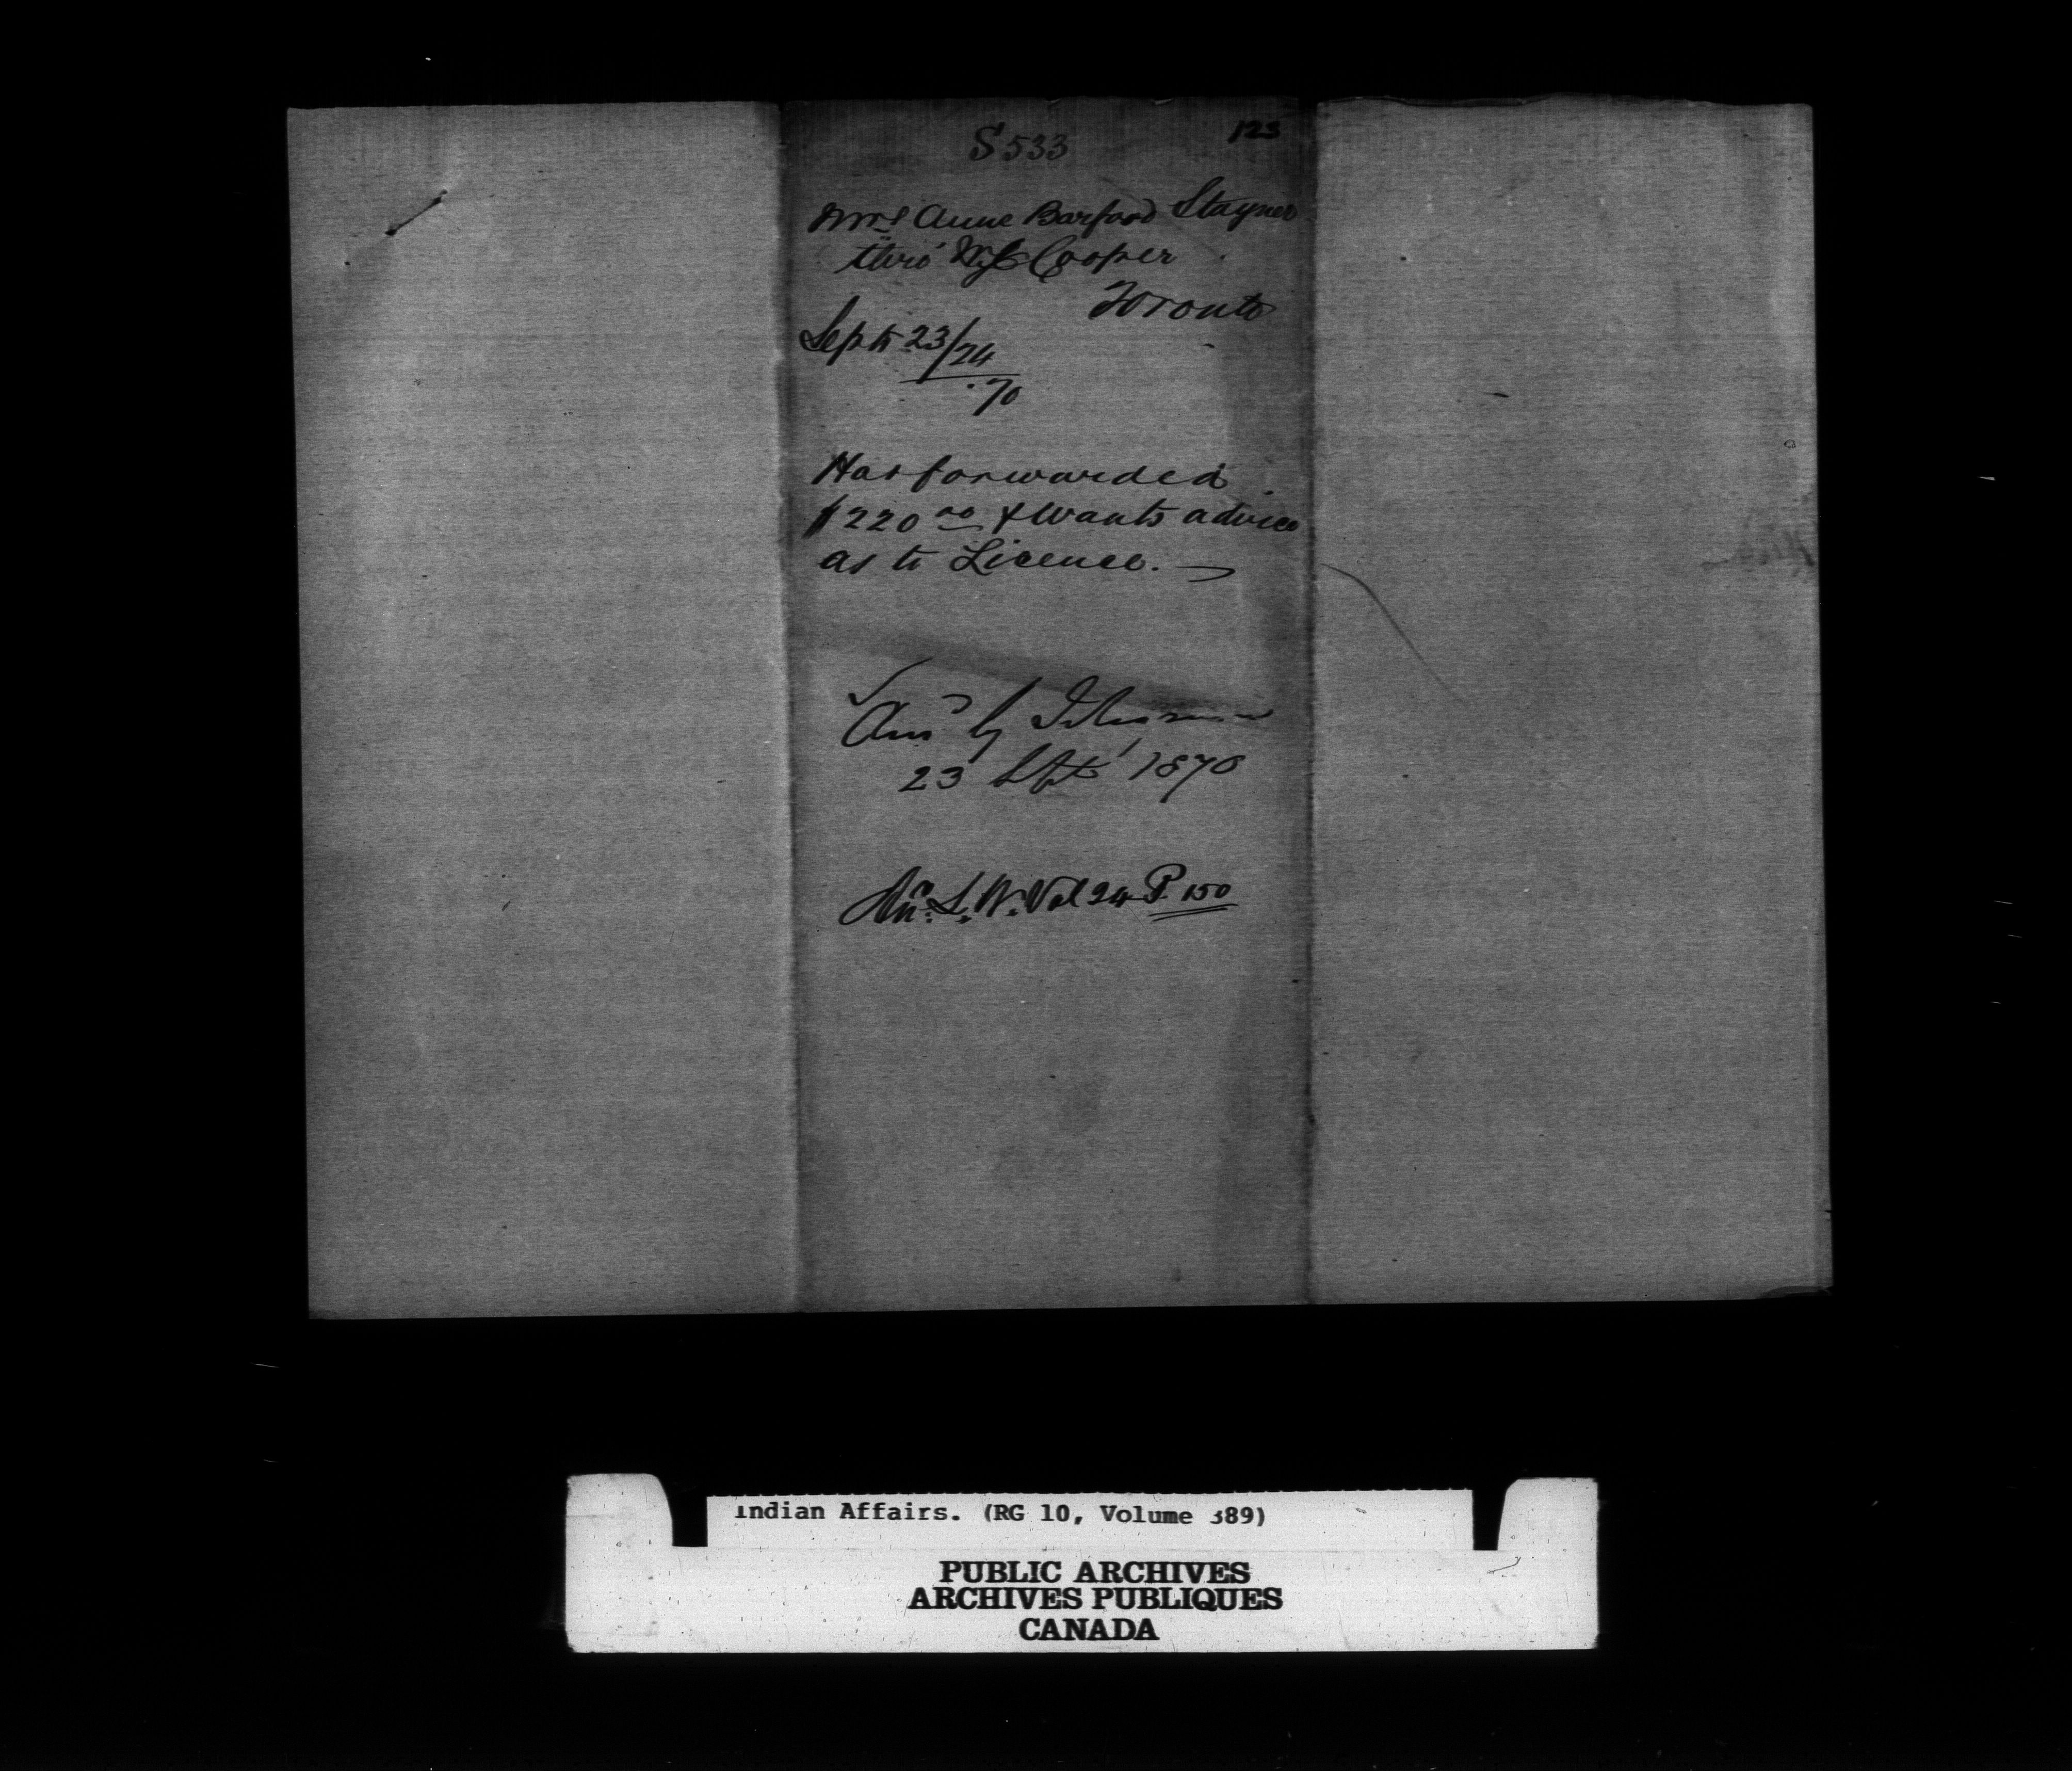 123
S 533
Mrs Anne Barford Stayner
thro' Cooper
Toronto
Sept 23/24
70
Has forwarded
$220 00 & Wants advice
as to Licence.
Ansd by
23 Sept 1870
An. L. W. Vol 24 P. 150
Indian Affairs. (RG 10, Volume 389)
PUBLIC ARCHIVES
ARCHIVES PUBLIQUES
CANADA